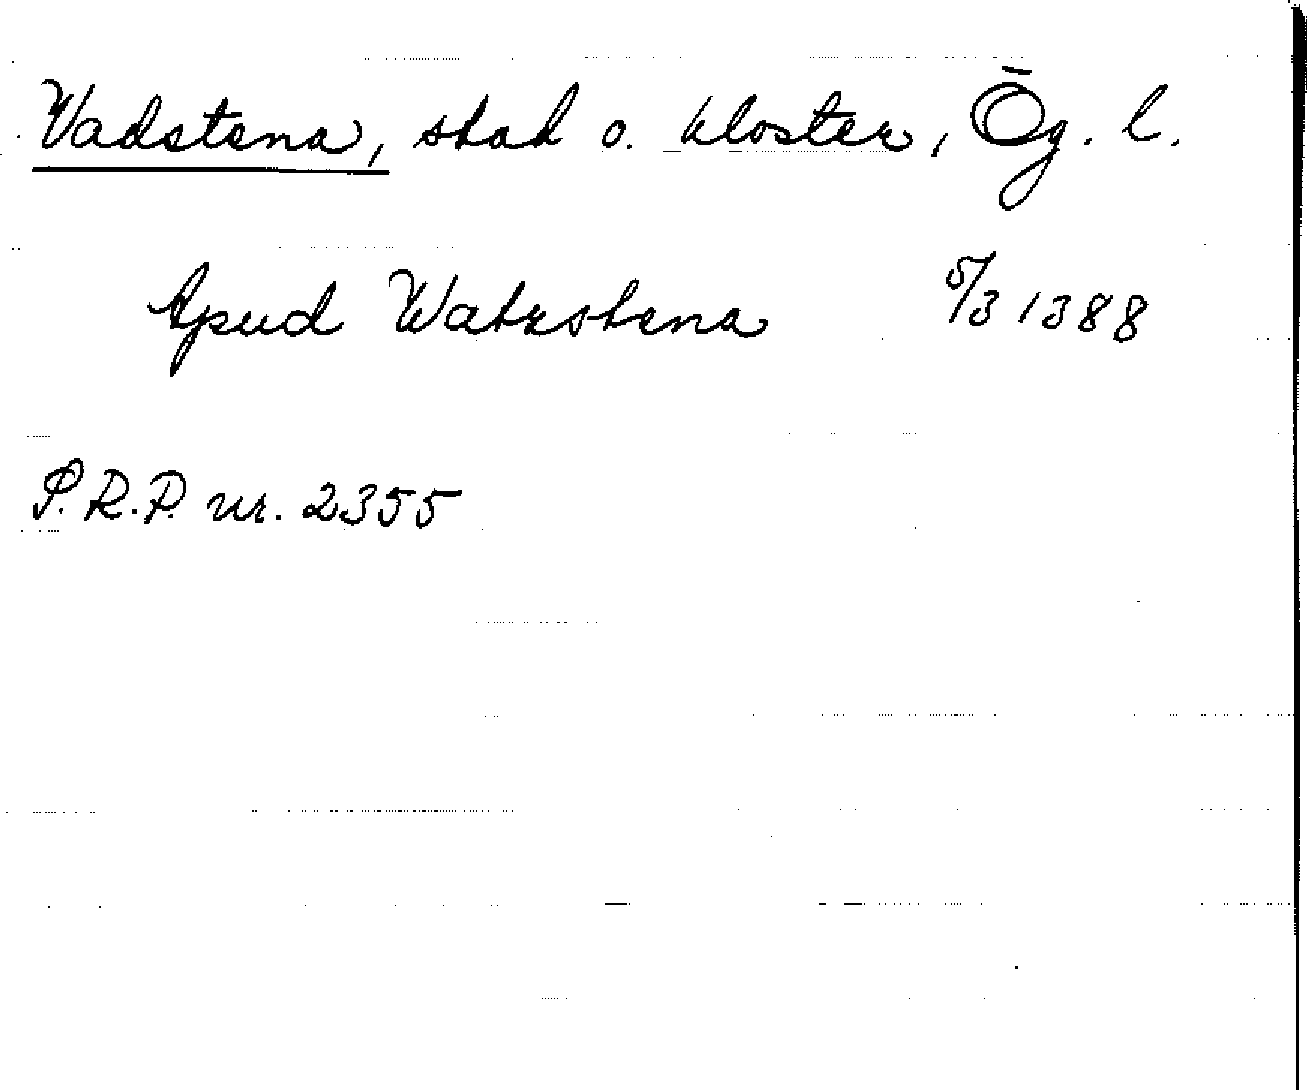 Vadstena, stad o. kloster, Ög. l.
Apud Watzstena 5/3 1388
P.R.P. nr. 2355